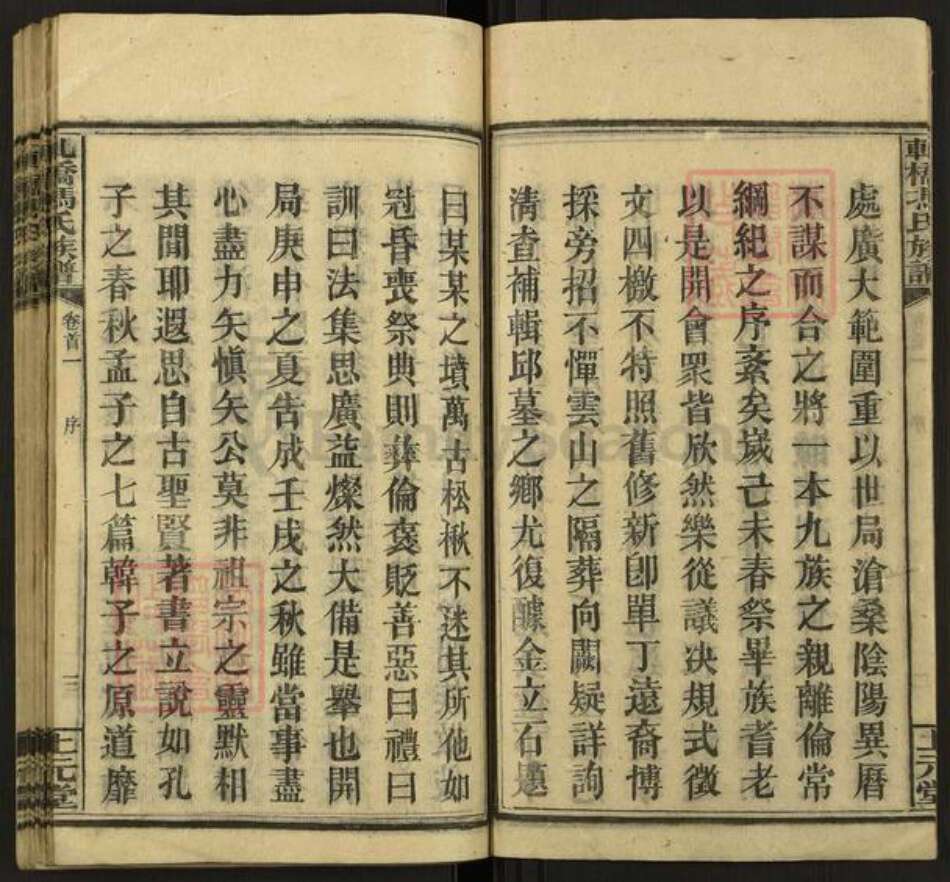 處廣大範圍重以世局滄桑陰陽異曆
不謀而合之將一本九族之親離倫常
綱紀之序紊矣嵗己未春祭畢族耆老
以是開會眾皆欣然樂從議决規式徵
文四檄不特照舊修新卽單丁遠裔博
採旁招不憚雲山之隔葬向闕疑詳詢
清查補輯邱墓之鄉尤復醵金立石題
曰某某之墳萬古松楸不迷其所他如
冠昏喪祭典則彝倫褒貶善惡曰禮曰
訓曰法集思廣益燦然大備是舉也開
局庚申之夏告成壬戌之秋雖當事盡
心盡力矣愼矣公莫非祖宗之靈默相
其間耶遐思自古聖賢著書立說如孔
子之春秋孟子之七篇韓子之原道靡
橋馮氏族譜
卷首一
序
三
上元堂